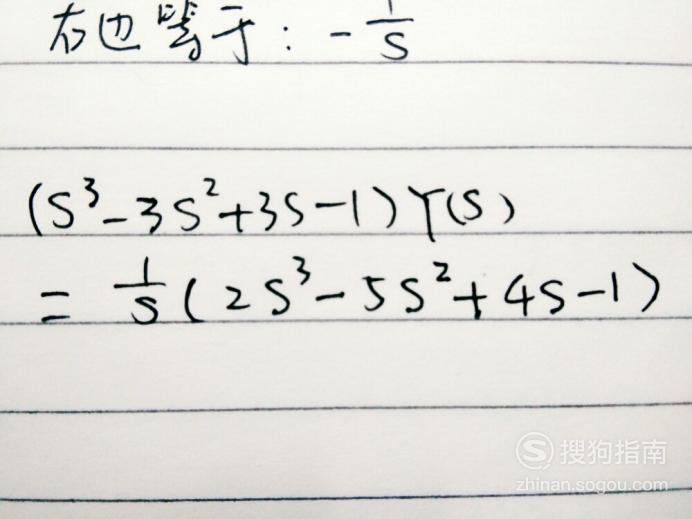 右边等于: -1/S
(S³-3S²+3S-1)Y(S)
= 1/S(2S³-5S²+4S-1)
搜狗指南
zhinan.sogou.com